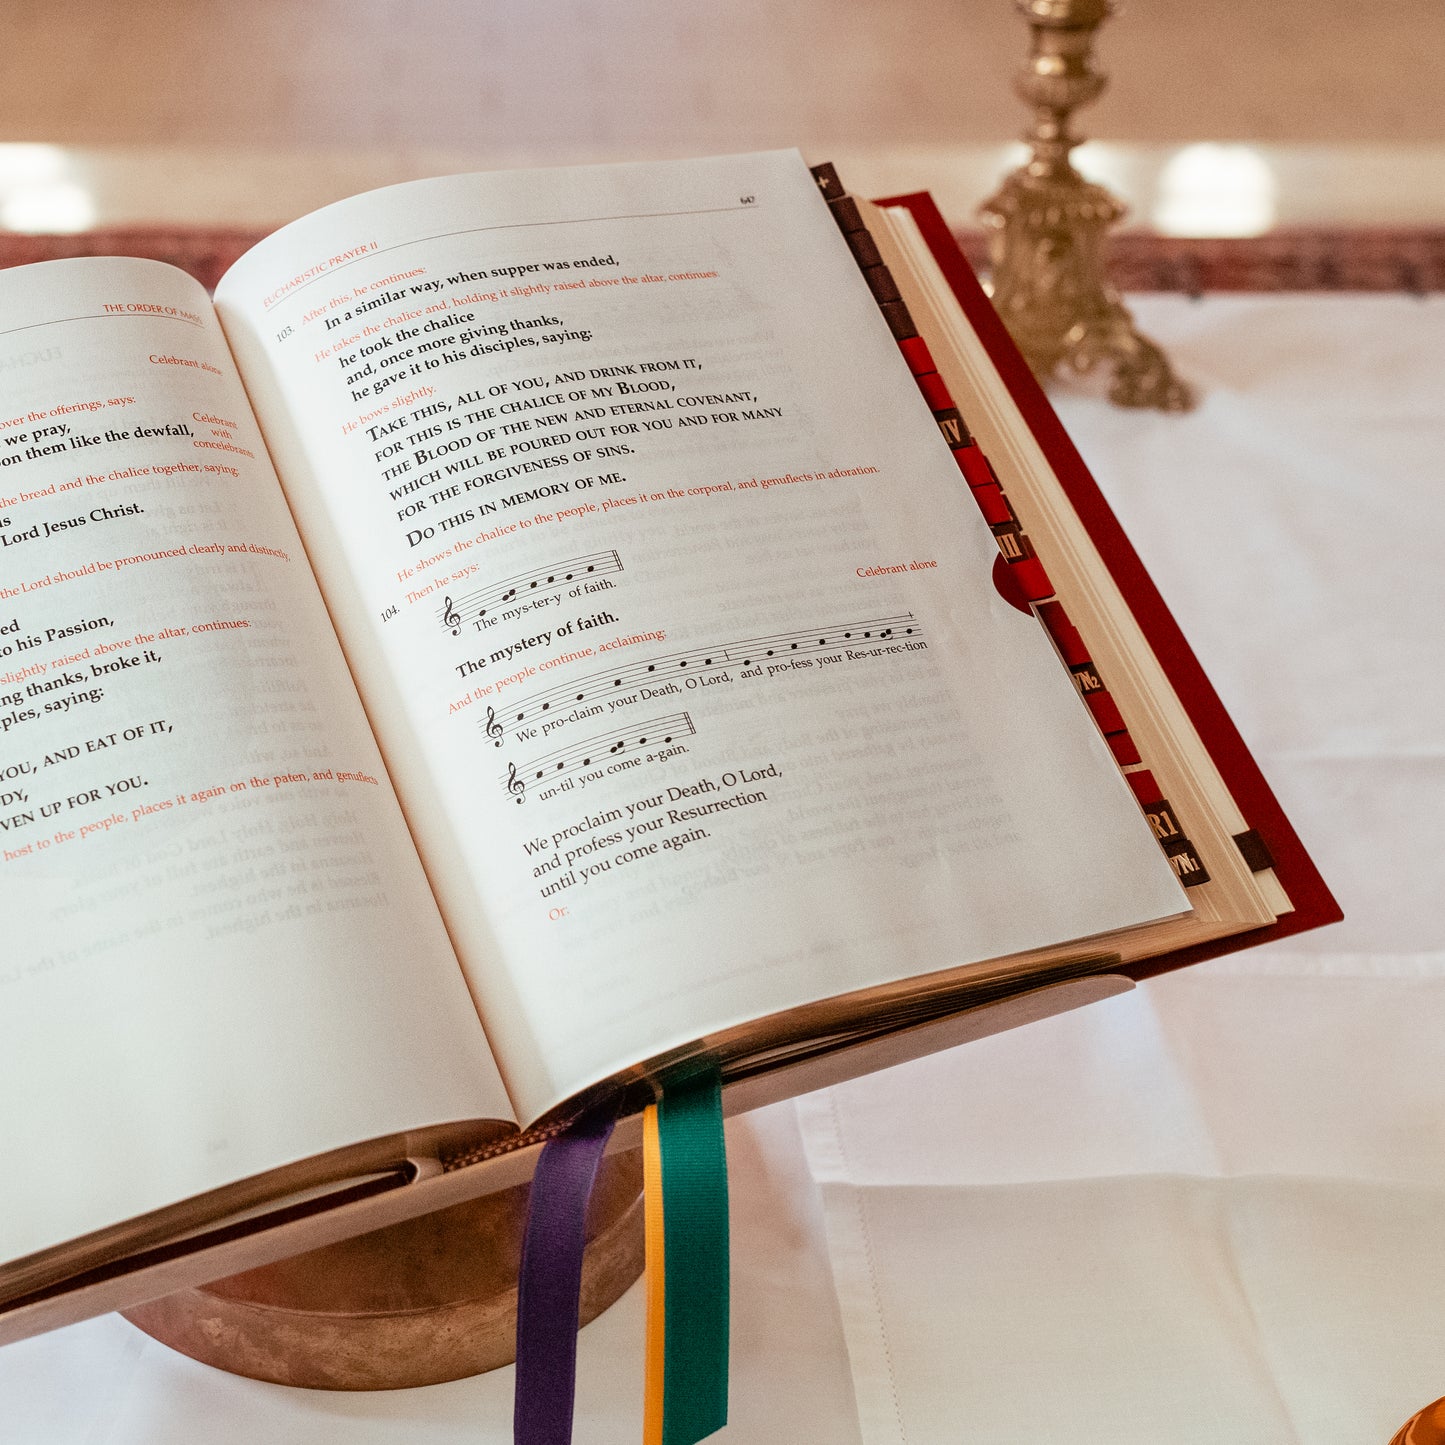 THE ORDER OF MASS
Celebrant alone
over the offerings, says:
we pray,
Celebrant
with
concelebrants
on them like the dewfall,
the bread and the chalice together, saying:
Lord Jesus Christ.
the Lord should be pronounced clearly and distinctly,
ed
to his Passion,
slightly raised above the altar, continues:
ng thanks, broke it,
ples, saying:
YOU, AND EAT OF IT,
DY,
VEN UP FOR YOU.
host to the people, places it again on the paten, and genuflects
EUCHARISTIC PRAYER II
647
103. After this, he continues:
In a similar way, when supper was ended,
He takes the chalice and, holding it slightly raised above the altar, continues:
he took the chalice
and, once more giving thanks,
he gave it to his disciples, saying:
He bows slightly.
TAKE THIS, ALL OF YOU, AND DRINK FROM IT,
FOR THIS IS THE CHALICE OF MY BLOOD,
THE BLOOD OF THE NEW AND ETERNAL COVENANT,
WHICH WILL BE POURED OUT FOR YOU AND FOR MANY
FOR THE FORGIVENESS OF SINS.
DO THIS IN MEMORY OF ME.
He shows the chalice to the people, places it on the corporal, and genuflects in adoration.
104. Then he says:
Celebrant alone
The mys-ter-y of faith.
The mystery of faith.
And the people continue, acclaiming:
We pro-claim your Death, O Lord, and pro-fess your Res-ur-rec-tion
un-til you come a-gain.
We proclaim your Death, O Lord,
and profess your Resurrection
until you come again.
Or:
IV
III
VN2
R1
VN1